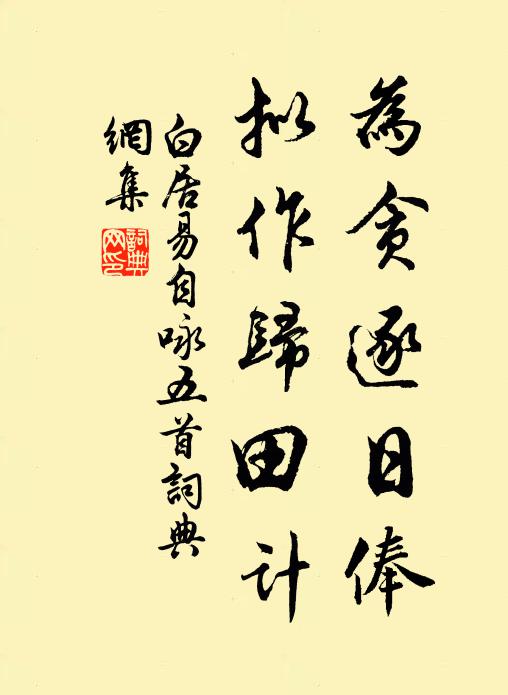 為貪逐日俸
拟作歸田计
白居易自咏五首詞典
網集
詞典
网印